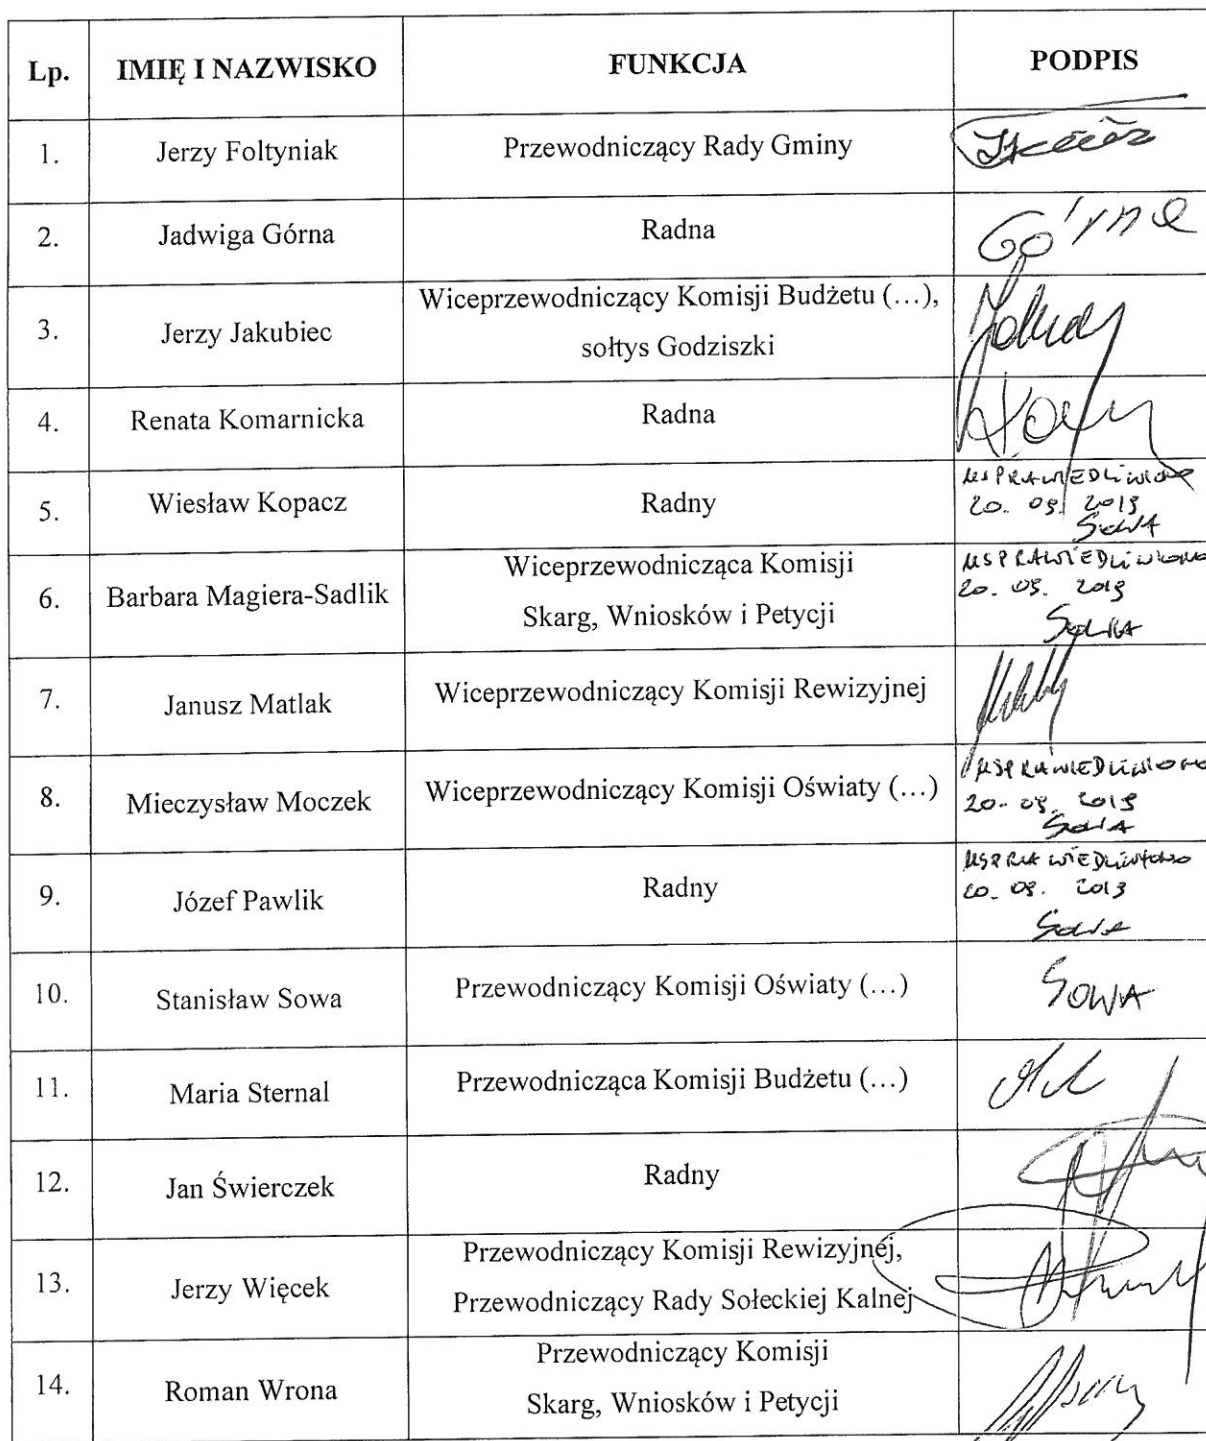 Lp. IMIĘ I NAZWISKO FUNKCJA PODPIS
1. Jerzy Foltyniak Przewodniczący Rady Gminy
2. Jadwiga Górna Radna Górna
3. Jerzy Jakubiec Wiceprzewodniczący Komisji Budżetu (…),
sołtys Godziszki
4. Renata Komarnicka Radna
5. Wiesław Kopacz Radny USPRAWIEDLIWIONO
20. 09. 2019
SOWA
6. Barbara Magiera-Sadlik Wiceprzewodnicząca Komisji USPRAWIEDLIWIONO
Skarg, Wniosków i Petycji 20. 09. 2019
SOWA
7. Janusz Matlak Wiceprzewodniczący Komisji Rewizyjnej
8. Mieczysław Moczek Wiceprzewodniczący Komisji Oświaty (…) USPRAWIEDLIWIONO
20. 09. 2019
SOWA
9. Józef Pawlik Radny USPRAWIEDLIWIONO
20. 09. 2019
SOWA
10. Stanisław Sowa Przewodniczący Komisji Oświaty (…) SOWA
11. Maria Sternal Przewodnicząca Komisji Budżetu (…)
12. Jan Świerczek Radny
13. Jerzy Więcek Przewodniczący Komisji Rewizyjnej,
Przewodniczący Rady Sołeckiej Kalnej
14. Roman Wrona Przewodniczący Komisji
Skarg, Wniosków i Petycji